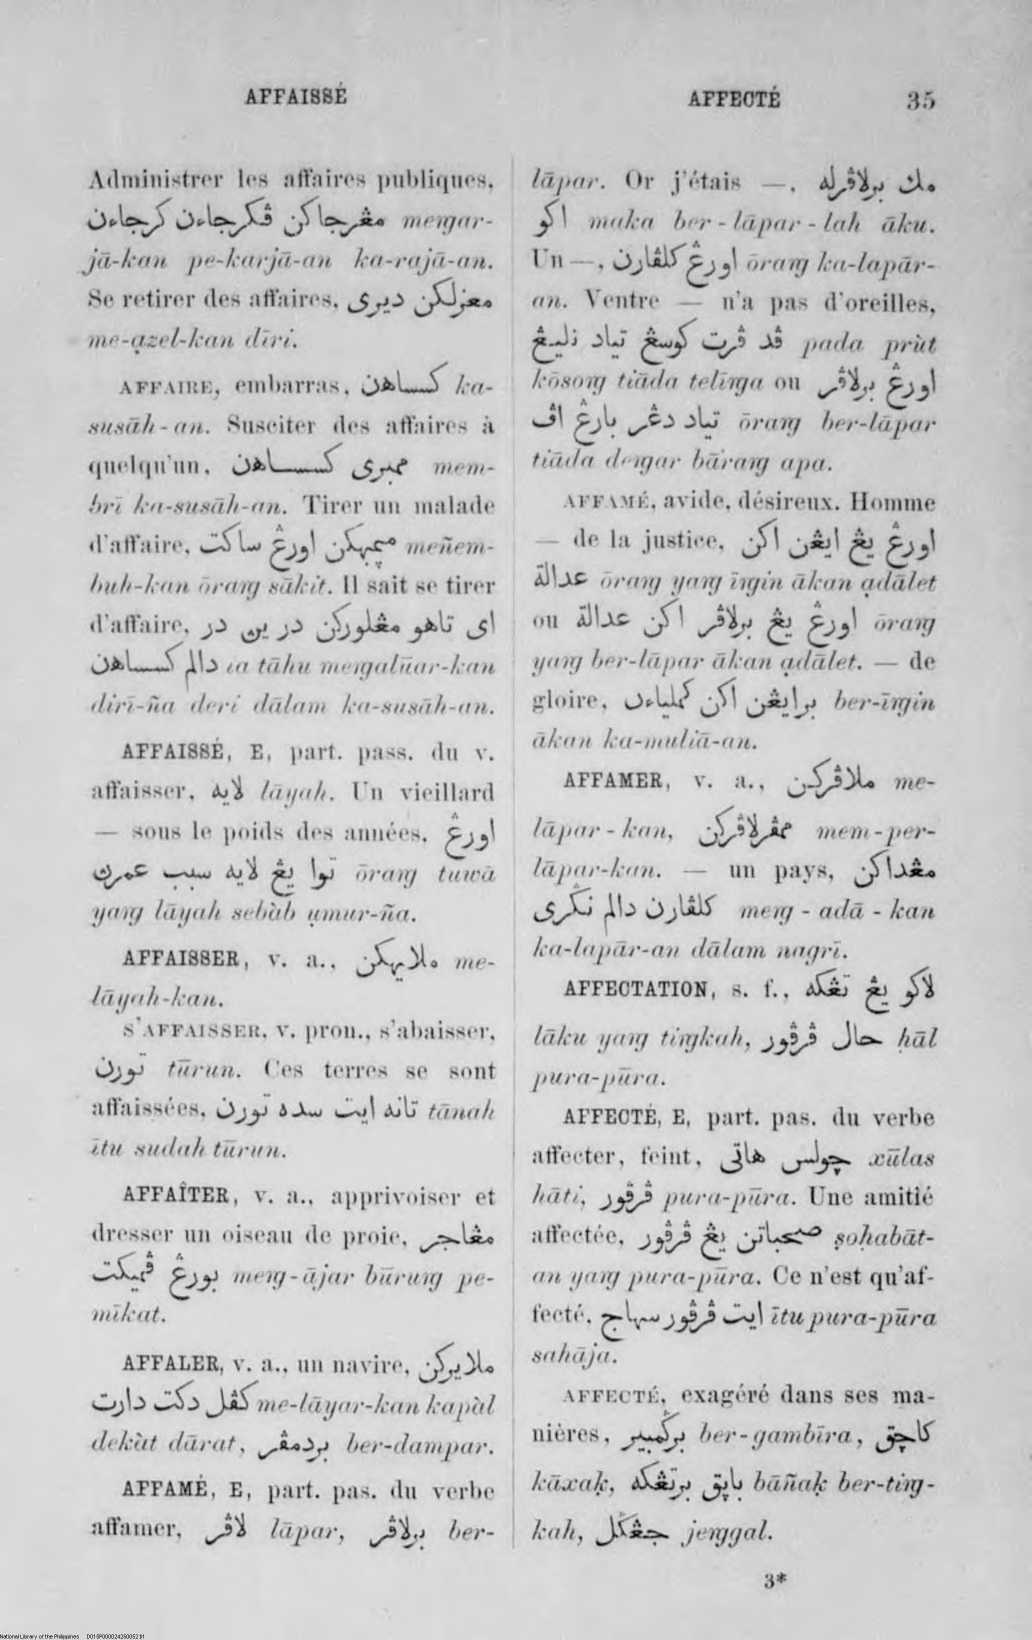 AFFAISSÉ
AFFECTÉ 35
Administrer les affaires publiques,
مڠرجاكن ڤكرجاءن كرجاءن meṛgar-
jā-kan pe-karjā-an ka-rajā-an.
Se retirer des affaires, معزلكن ديرى
me-ạzel-kan dīri.
AFFAIRE, embarras, كسساهن ka-
susāh-an. Susciter des affaires à
quelqu'un, ممبرى كسساهن mem-
brī ka-susāh-an. Tirer un malade
d'affaire, ميمبهكن اورڠ ساكت meñem-
buh-kan ōraṛg sākit. Il sait se tirer
d'affaire, اى تاهو مڠلوركن درين در
دالم كسساهن ia tāhu meṛgalūar-kan
dirī-ña deri dālam ka-susāh-an.
AFFAISSÉ, E, part. pass. du v.
affaisser, لايه lāyah. Un vieillard
— sous le poids des années, اورڠ
توا يڠ لايه سبب عمرڽ ōraṛg tuwā
yaṛg lāyah sebàb ụmur-ña.
AFFAISSER, v. a., ملايهكن me-
lāyah-kan.
S'AFFAISSER, v. pron., s'abaisser,
تورن tūrun. Ces terres se sont
affaissées, تانه ايت سده تورن tānah
ītu sudah tūrun.
AFFAÎTER, v. a., apprivoiser et
dresser un oiseau de proie, مڠاجر
بورڠ ڤميكت meṛg-ājar būruṛg pe-
mīkat.
AFFALER, v. a., un navire, ملايركن
كڤل دكت دارت me-lāyar-kan kapàl
dekàt dārat, بردمڤر ber-dampar.
AFFAMÉ, E, part. pas. du verbe
affamer, لاڤر lāpar, برلاڤر ber-
lāpar. Or j'étais —, مك برلاڤرله
اكو maka ber-lāpar-lah āku.
Un —, اورڠ كلڤارن ōraṛg ka-lapār-
an. Ventre — n'a pas d'oreilles,
ڤد ڤرت كوسڠ تياد تليڠ pada prùt
kōsoṛg tiāda telīṛga ou اورڠ برلاڤر
تياد دڠر بارڠ اڤ ōraṛg ber-lāpar
tiāda deṛgar bāraṛg apa.
AFFAMÉ, avide, désireux. Homme
— de la justice, اورڠ يڠ ايڠن اكن
عدالة ōraṛg yaṛg īṛgin ākan ạdālet
ou اورڠ يڠ برلاڤر اكن عدالة ōraṛg
yaṛg ber-lāpar ākan ạdālet. — de
gloire, برايڠن اكن كملياءن ber-īṛgin
ākan ka-muliā-an.
AFFAMER, v. a., ملاڤركن me-
lāpar-kan, ممڤرلاڤركن mem-per-
lāpar-kan. — un pays, مڠداكن
كلڤارن دالم نڬرى meṛg-adā-kan
ka-lapār-an dālam nagrī.
AFFECTATION, s. f., لاكو يڠ تڠكه
lāku yaṛg tiṛgkah, حال ڤرڤور ḥāl
pura-pūra.
AFFECTÉ, E, part. pas. du verbe
affecter, feint, چولس هاتى xūlas
hāti, ڤرڤور pura-pūra. Une amitié
affectée, صحباتن يڠ ڤرڤور ṣoḥabāt-
an yaṛg pura-pūra. Ce n'est qu'af-
fecté, ايت ڤرڤور سهاج ītu pura-pūra
sahāja.
AFFECTÉ, exagéré dans ses ma-
nières, برڬمبير ber-gambīra, كاچق
kāxaḳ, باڽق برتڠكه bāñaḳ ber-tiṛg-
kah, جڠڬل jeṛggal.
3*
National Library of the Philippines